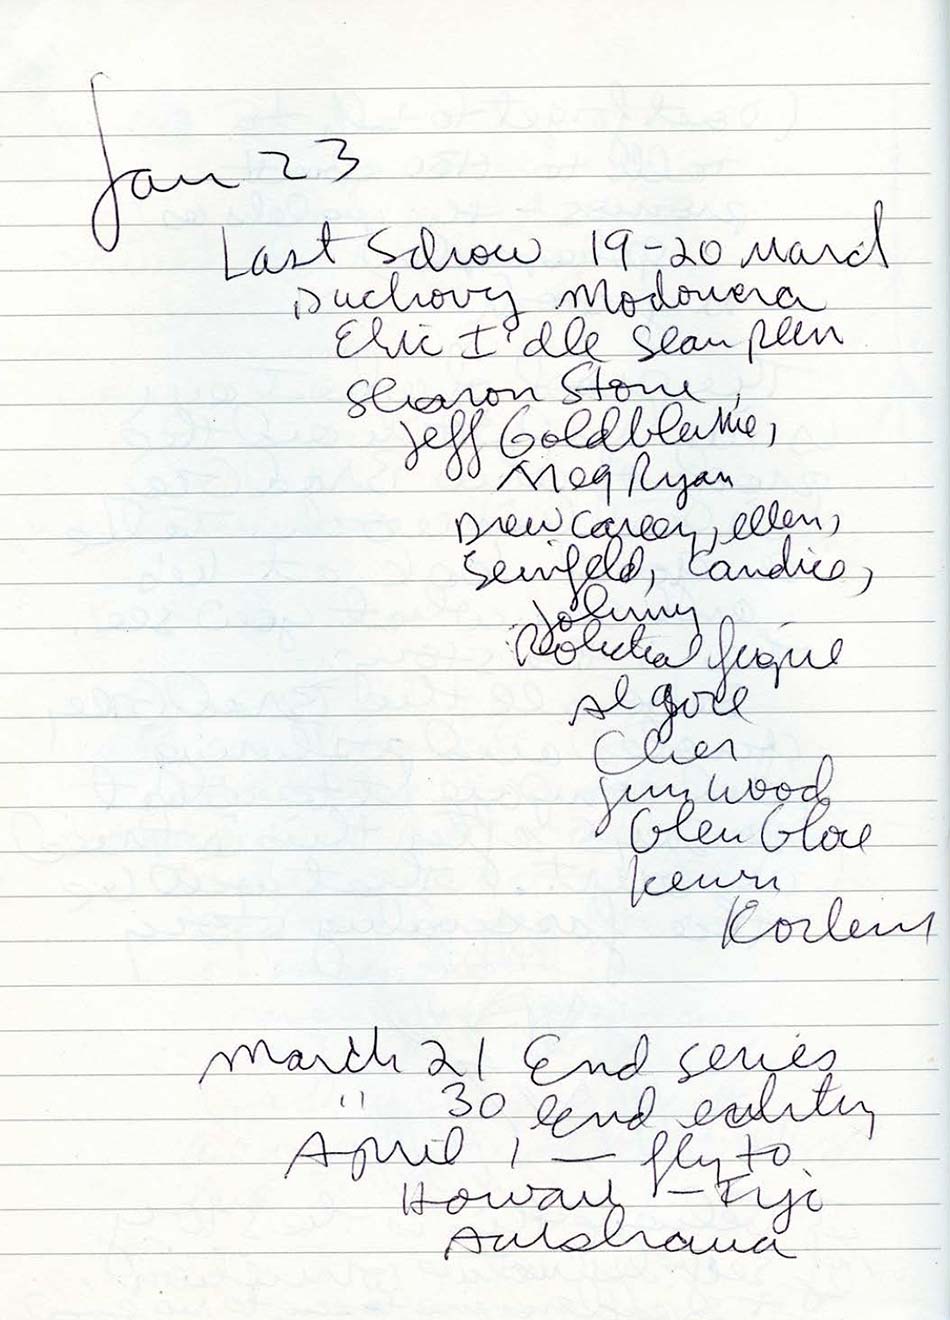 Jan 23
Last Schow 19-20 March
Duchovny Madonna
Eric Idle Sean Penn
Sharon Stone,
Jeff Goldblume,
Meg Ryan
Drew Carey, ellen,
Seinfeld, Candice,
Johnny
Political figure
Al gore
Cher
Jim Wood
Glen Close
Kevin
March 21 End series
" 30 end
April 1 — fly to
Howaii - Fiji